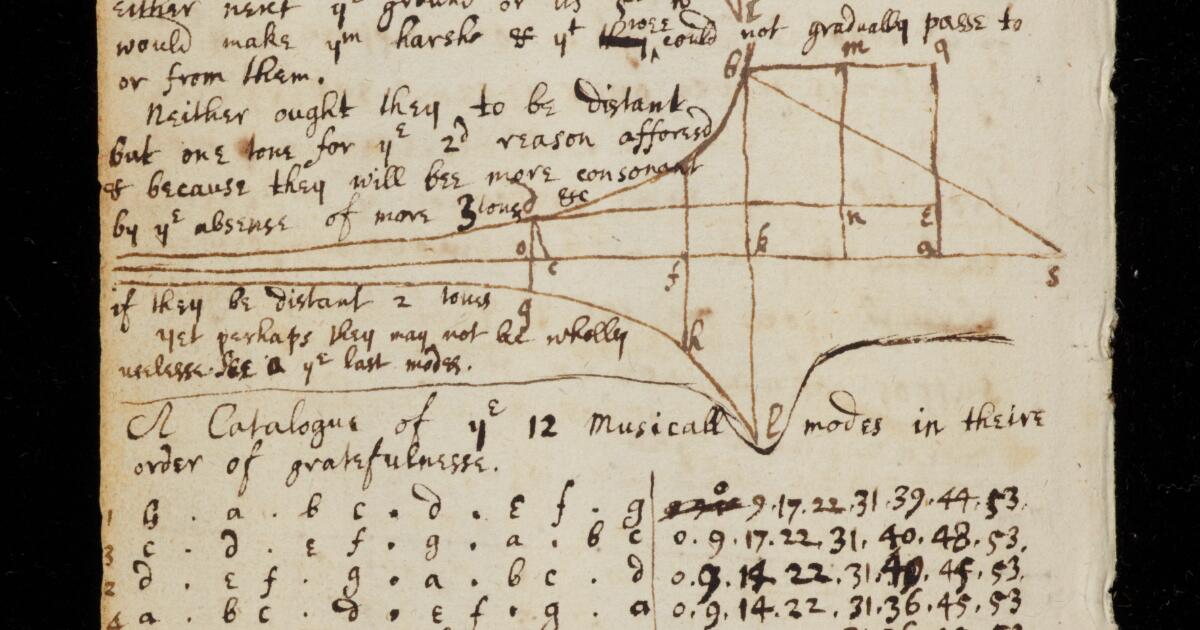 either next yᵉ ground or its
would make yᵐ harshe & yᵗ wee could not gradually passe to
or from them.
Neither ought they to be distant
but one tone for yᴱ 2ᵈ reason affored
& because they will bee more consonant
by yᴱ absense of more 3tones &c
if they be distant 2 tones
yet perhaps they may not be wholly
uselesse. See yᴱ last modes.
A Catalogue of yᴱ 12 Musicall modes in theire
order of gratefulnesse.
1 G . a . b c . d . e f . g 0 9.17.22.31.39.44.53.
3 c . d . e f . g . a . b c 0.9.17.22.31.40.48.53.
2 d . e f . g . a . b c . d 0.9.14.22.31.40.45.53.
4 a . b c . d . e f . g . a 0.9.14.22.31.36.45.53
G m q
d
o c f k n e a s
g h
l